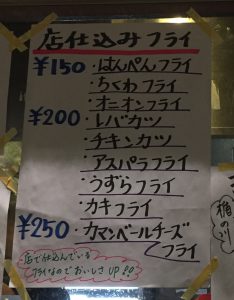 店仕込みフライ
¥150・はんぺんフライ
・ちくわフライ
・オニオンフライ
¥200・レバカツ
・チキンカツ
・アスパラフライ
・うずらフライ
・カキフライ
¥250・カマンベールチーズ
フライ
店で仕込んでいる
フライなのでおいしさUP!!